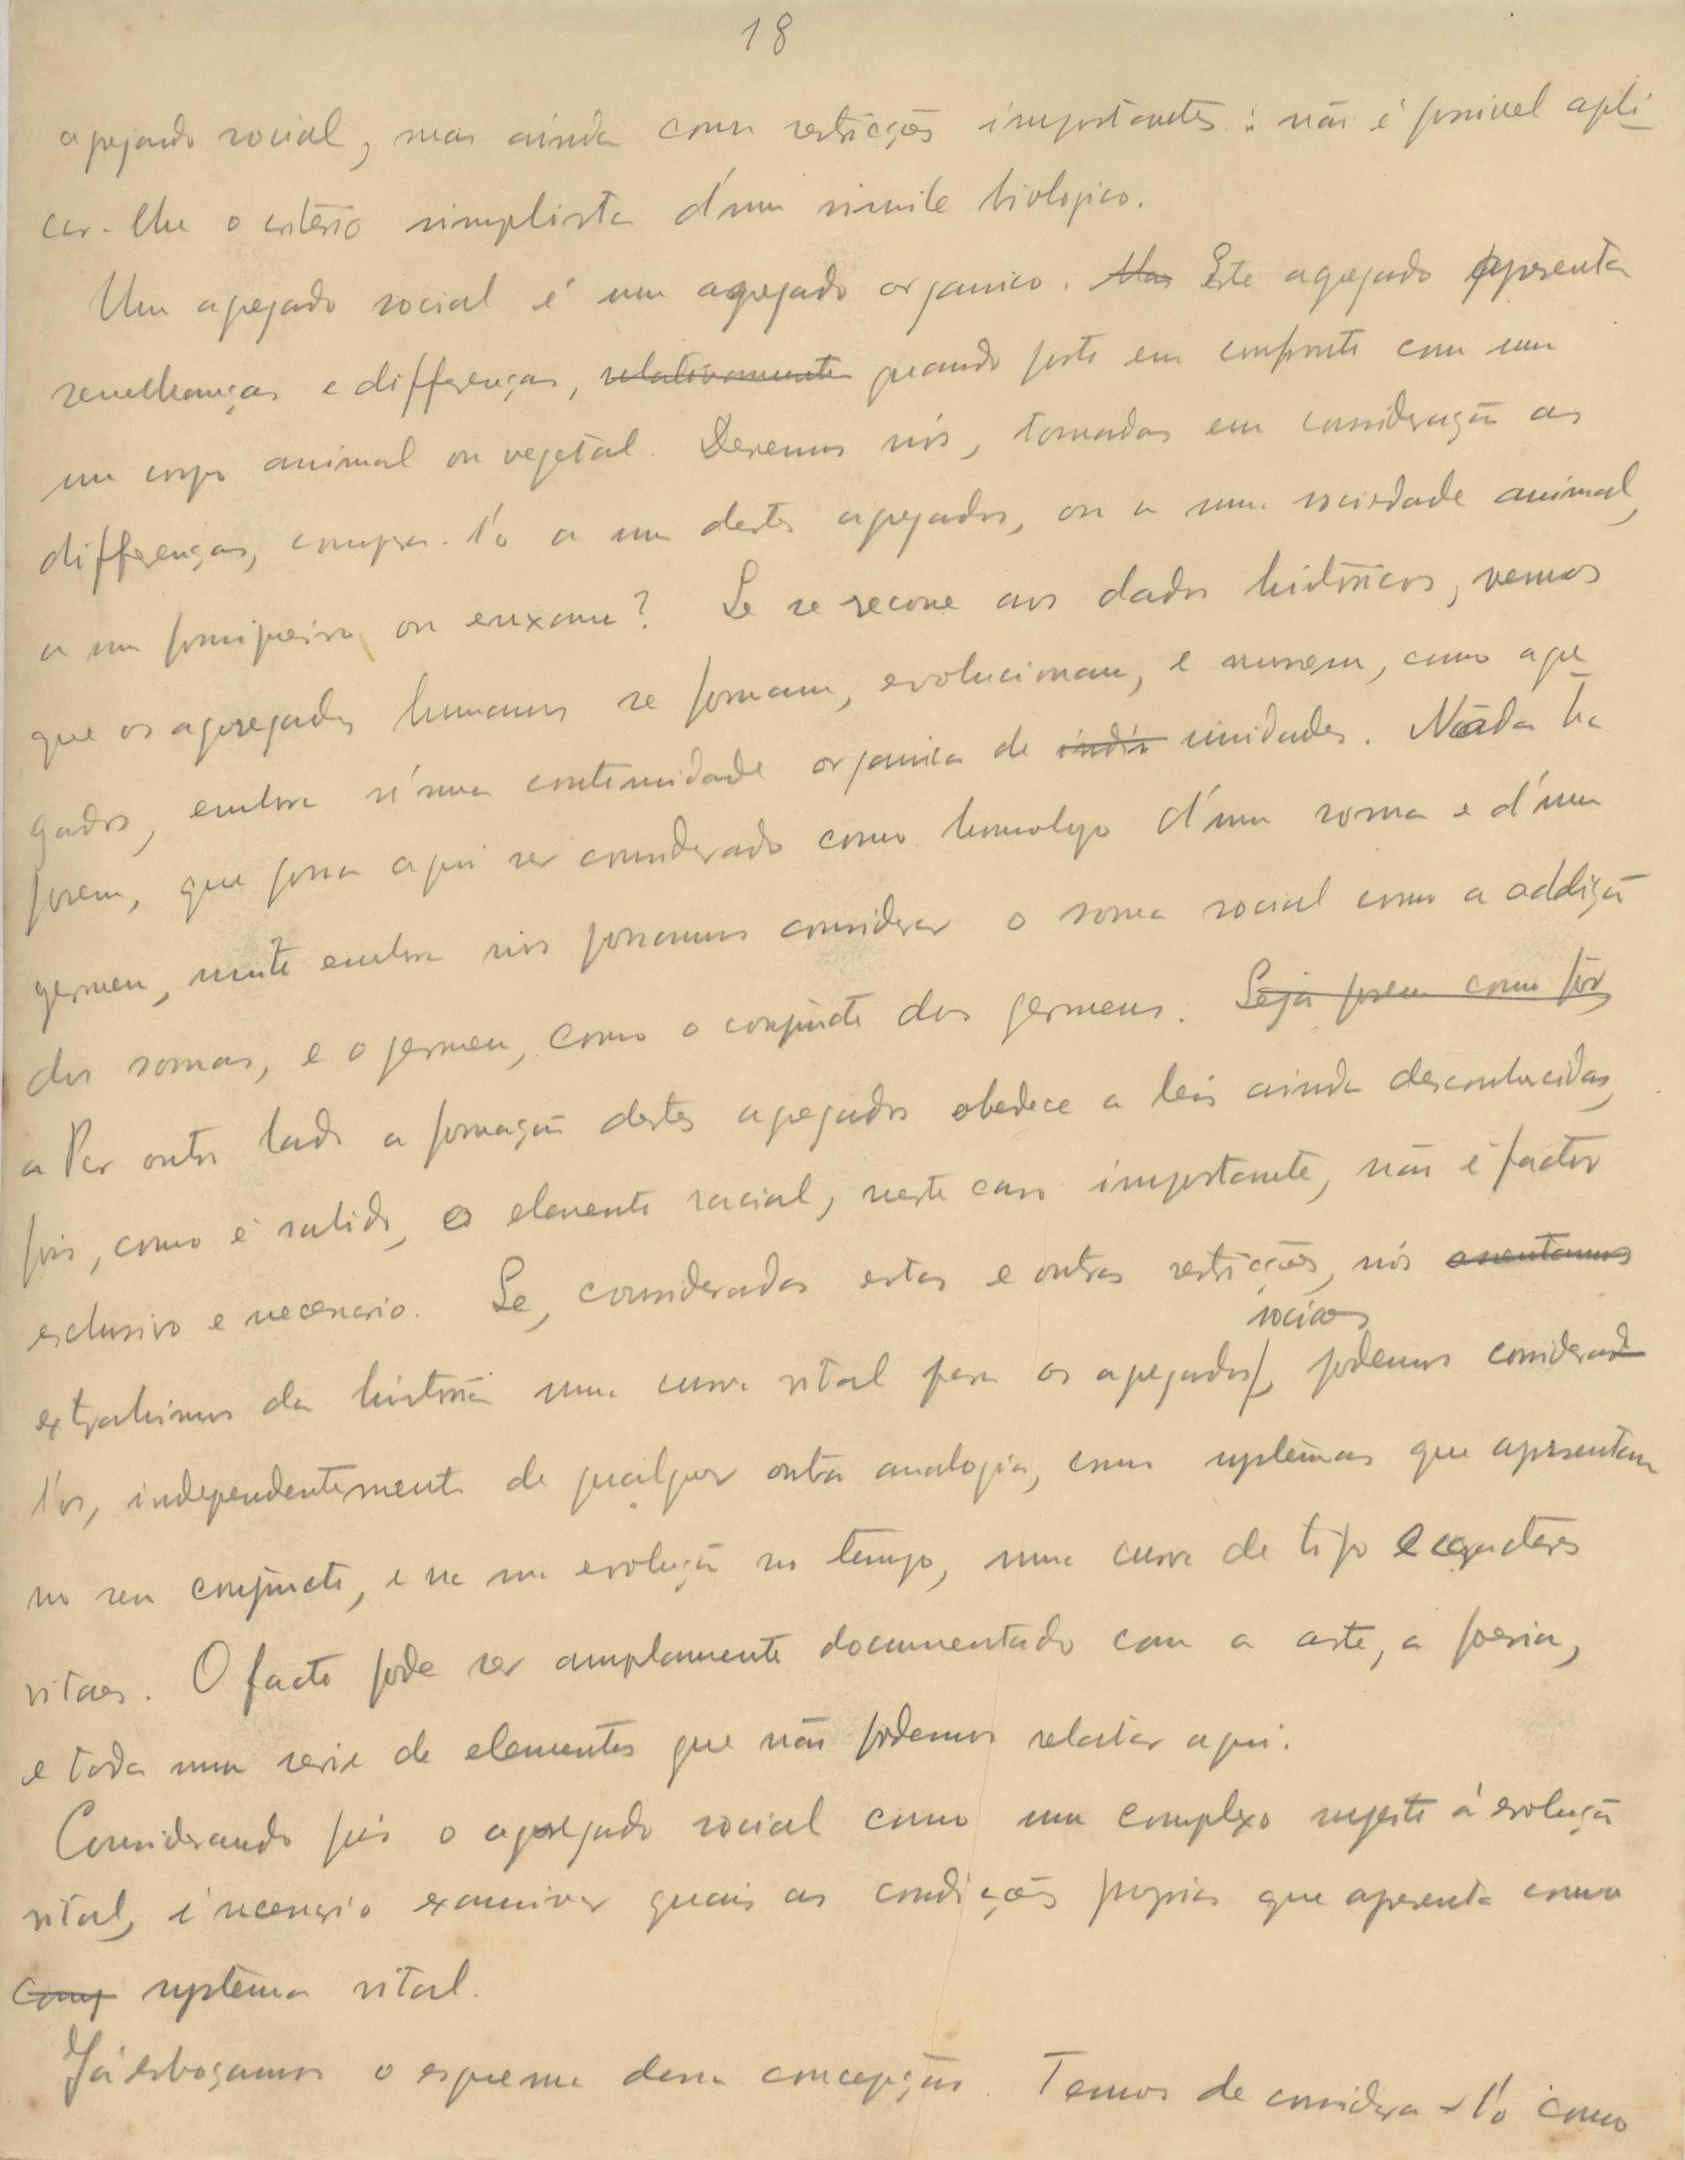 18
agregado social, mas ainda com restricções importantes: não é possivel apli-
car-lhe o critério simplista d'um simile biologico.
Um agregado social é um agregado organico. Mas Este agregado apresenta
semelhanças e differenças, relativamente quando posto em confronto com um
um corpo animal ou vegetal. Devemos nós, tomadas em consideração as
differenças, compara-l'o a um destes agregados, ou a uma sociedade animal,
a um formigueiro ou enxame? Se se recorre aos dados históricos, vemos
que os agregados humanos se formam, evolucionam, e morrem, como agre-
gados, embora n'uma continuidade organica de unidades. Nada ha
porem, que possa aqui ser considerado como homologo d'um soma e d'um
germen, muito embora nós possamos considerar o soma social como a addição
dos somas, e o germen, como o conjuncto dos germens. Seja porem como fôr,
a Por outro lado a formação destes agregados obedece a leis ainda desconhecidas,
pois, como é sabido, o elemento racial, neste caso importante, não é factor
exclusivo e necessario. Se, consideradas estas e outras restricções, nós
sociaes
extrahimos da história uma curva vital para os agregados, podemos considera-
l'os, independentemente de qualquer outra analogia, como systemas que apresentam
no seu conjuncto, e na sua evolução no tempo, uma curva de tipo e caracteres
vitaes. O facto pode ser amplamente documentado com a arte, a poesia,
e toda uma serie de elementos que não podemos relatar aqui.
Considerando pois o agregado social como um complexo sujeito á evolução
vital, é necessario examinar quais as condições proprias que apresenta como
Comp systema vital.
Já esboçamos o esquema dessa concepção. Temos de considera-l'o como